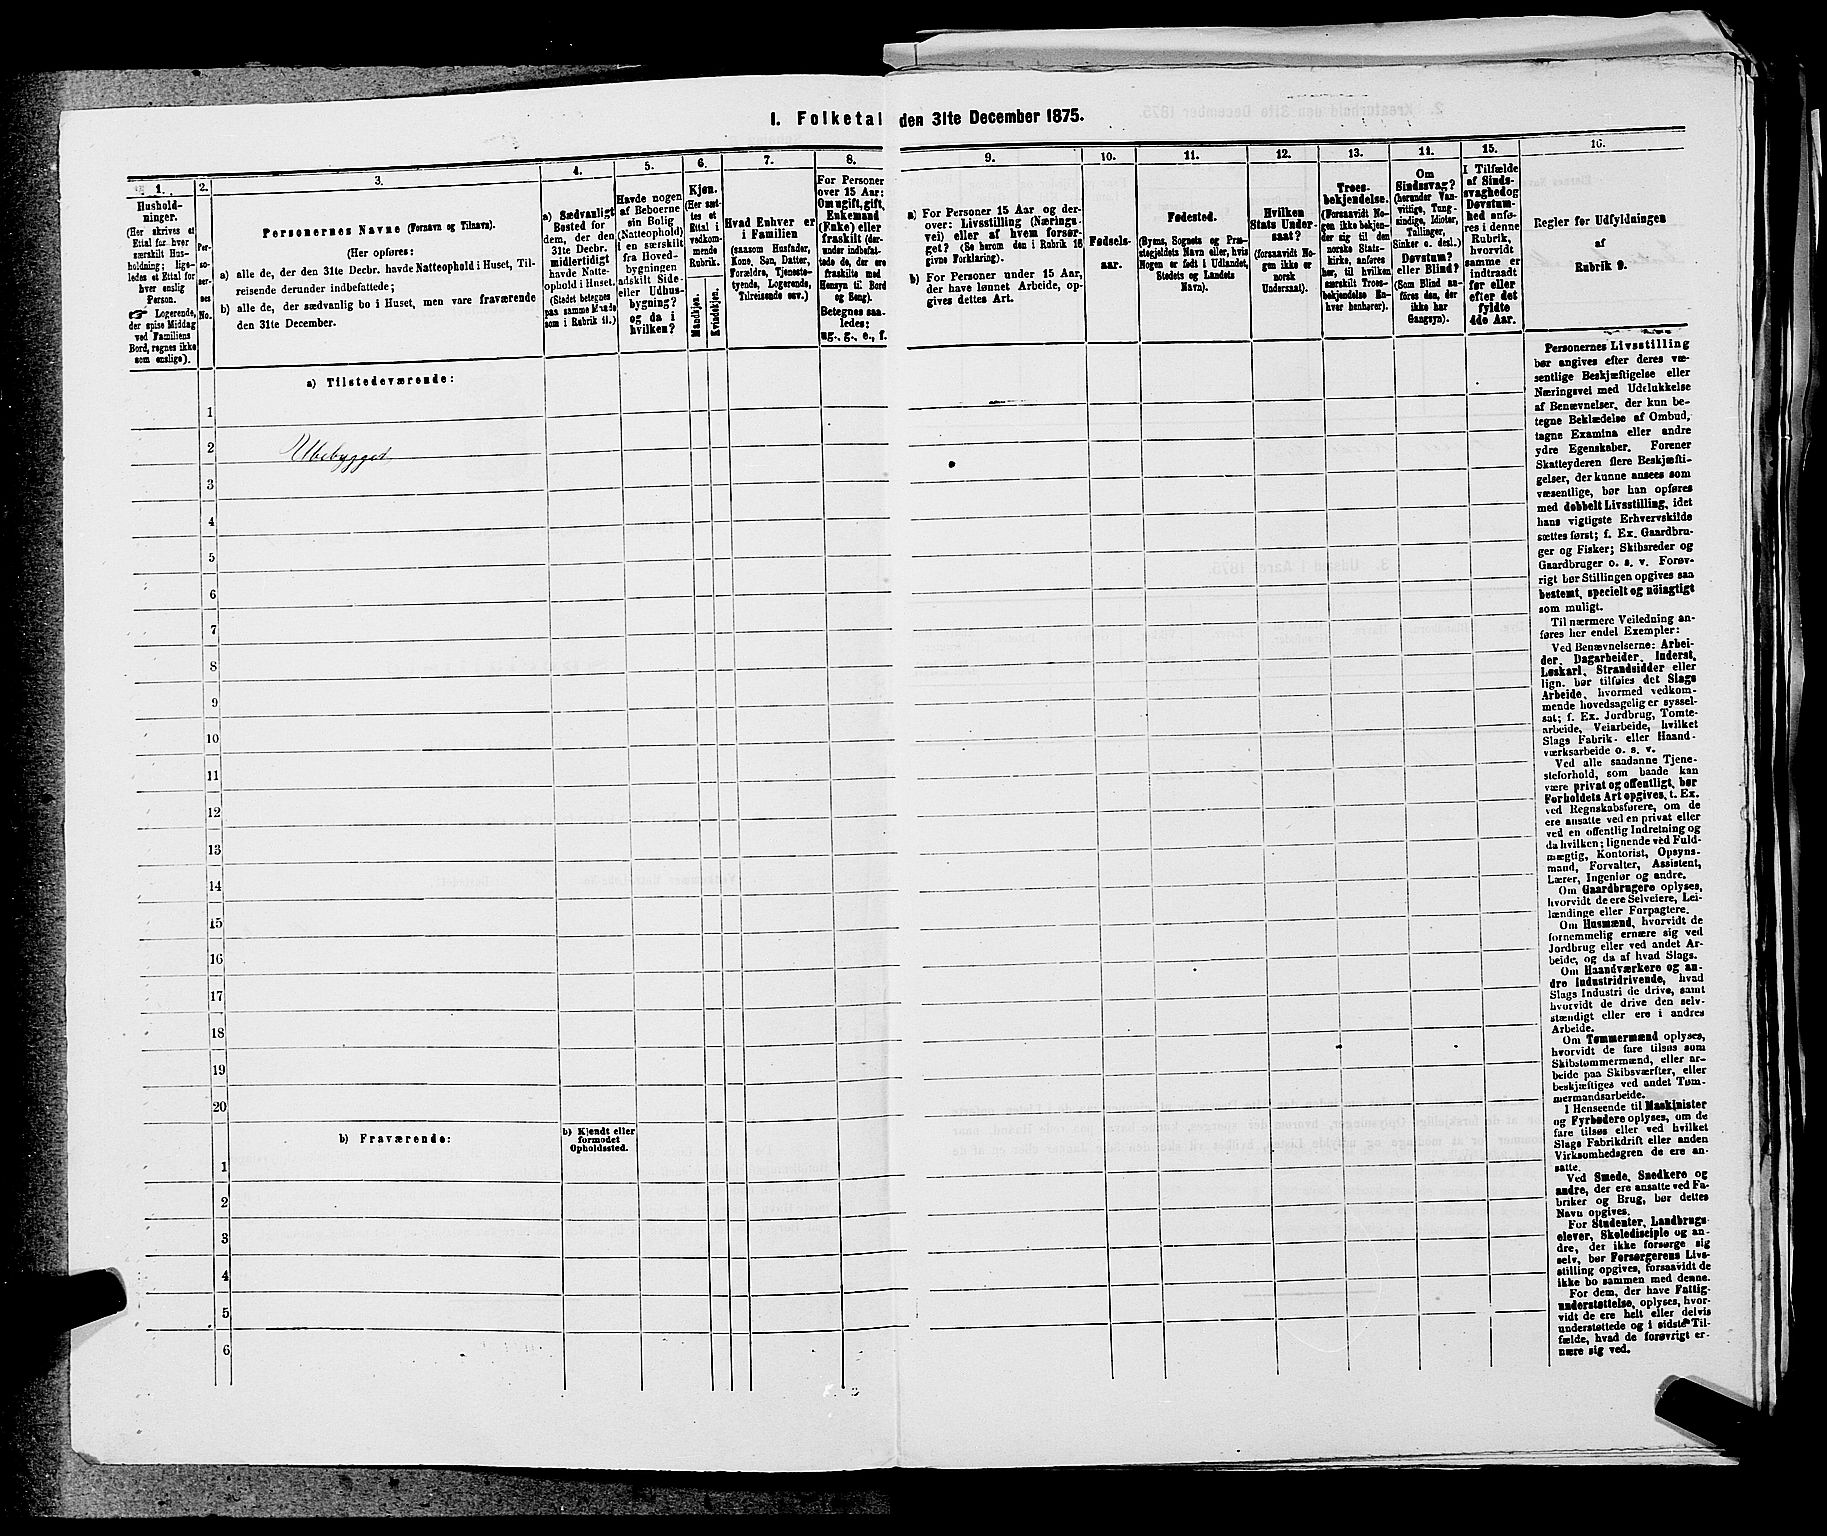 I. Folketal den 31te December 1875.
1.
Hushold-
ninger.
(Her skrives et
Ettal for hver
særskilt Hus-
holdning; lige-
ledes et Ettal for
hver enslig
Person.
☞ Logerende,
der spise Middag
ved Familiens
Bord, regnes ikke
som enslige).
2.
Per-
so-
ner-
nes
No.
3.
Personernes Navne (Fornavn og Tilnavn).
(Her opføres:
a) alle de, der den 31te Decbr. havde Natteophold i Huset, Til-
reisende derunder indbefattede;
b) alle de, der sædvanlig bo i Huset, men vare fraværende
den 31te December.
4.
a) Sædvanligt
Bosted for
dem, der den
31te Decbr.
midlertidigt
havde Natte-
ophold i Huset.
(Stedet betegnes
paa samme Maade
som i Rubrik 11.)
5.
Havde nogen
af Beboerne
sin Bolig
(Natteophold)
i en særskilt
fra Hoved-
bygningen
adskilt Side-
eller Udhus-
bygning?
og da i
hvilken?
6.
Kjøn.
(Her sæt-
tes et
Ettal i
vedkom-
mende
Rubrik.
Mandkjøn.
Kvindekjøn.
7.
Hvad Enhver er
i Familien
(saasom Husfader,
Kone, Søn, Datter,
Forældre, Tjeneste-
tyende, Logerende,
Tilreisende osv.)
8.
For Personer
over 15 Aar:
Om ugift, gift,
Enkemand
(Enke) eller
fraskilt (der-
under indbefat-
tede de, der ere
fraskilte med
Hensyn til Bord
og Seng).
Betegnes saa-
ledes:
ug., g., e., f.
9.
a) For Personer 15 Aar og der-
over: Livsstilling (Nærings-
vei) eller af hvem forsør-
get? (Se herom den i Rubrik 16
givne Forklaring).
b) For Personer under 15 Aar,
der have lønnet Arbeide, op-
gives dettes Art.
10.
Fødsels-
aar.
11.
Fødested.
(Byens, Sognets og Præ-
stegjeldets Navn eller, hvis
Nogen er født i Udlandet,
Stedets og Landets
Navn).
12.
Hvilken
Stats Under-
saat?
(forsaavidt No-
gen ikke er
norsk
Undersaat).
13.
Troes-
bekjendelse.
(Forsaavidt No-
gen ikke bekjen-
der sig til den
norske Stats-
kirke, anføres
her, til hvilken
særskilt Troes-
bekjendelse En-
hver henhører).
14.
Om
Sindssvag?
(herunder Van-
vittige, Tung-
sindige, Idioter,
Tullinger,
Sinker o. desl.)
Døvstum?
eller Blind?
(Som Blind an-
føres den, der
ikke har
Gangsyn).
15.
I Tilfælde
af Sinds-
svaghed og
Døvstum-
hed anfø-
res i denne
Rubrik,
hvorvidt
samme er
indtraadt
før eller
efter det
fyldte
4de Aar.
16.
Regler for Udfyldningen
af
Rubrik 9.
a) Tilstedeværende:
1
2 Ubebygget
3
4
5
6
7
8
9
10
11
12
13
14
15
16
17
18
19
20
b) Fraværende:
b) Kjendt eller
formodet
Opholdssted.
1
2
3
4
5
6
Personernes Livsstilling
bør angives efter deres væ-
sentlige Beskjæftigelse eller
Næringsvei med Udelukkelse
af Benævnelser, der kun be-
tegne Beklædelse af Ombud,
tagne Examina eller andre
ydre Egenskaber. Forener
Skatteyderen flere Beskjæfti-
gelser, der kunne ansees som
væsentlige, bør han opføres
med dobbelt Livsstilling, idet
hans vigtigste Erhvervskilde
sættes først; f. Ex. Gaardbru-
ger og Fisker; Skibsreder og
Gaardbruger o. s. v. Forøv-
rigt bør Stillingen opgives saa
bestemt, specielt og nöiagtigt
som muligt.
Til nærmere Veiledning an-
føres her endel Exempler:
Ved Benævnelserne: Arbei-
der, Dagarbeider, Inderst,
Løskarl, Strandsidder eller
lign. bør tilføies det Slags
Arbeide, hvormed vedkom-
mende hovedsagelig er syssel-
sat; f. Ex. Jordbrug, Tomte-
arbeide, Veiarbeide, hvilket
Slags Fabrik- eller Haand-
værksarbeide o. s. v.
Ved alle saadanne Tjene-
steforhold, som baade kan
være privat og offentligt, bør
Forholdets Art opgives, t. Ex.
ved Regnskabsførere, om de
ere ansatte ved en privat eller
ved en offentlig Indretning og
da hvilken; lignende ved Fuld-
mægtig, Kontorist, Opsyns-
mand, Forvalter, Assistent,
Lærer, Ingeniør og andre.
Om Gaardbrugere oplyses,
hvorvidt de ere Selveiere, Lei-
lændinge eller Forpagtere.
Om Husmænd, hvorvidt de
fornemmelig ernære sig ved
Jordbrug eller ved andet Ar-
beide, og da af hvad Slags.
Om Haandværkere og an-
dre Industridrivende, hvad
Slags Industri de drive, samt
hvorvidt de drive den selv-
stændigt eller ere i andres
Arbeide.
Om Tømmermænd oplyses,
hvorvidt de fare tilsøs som
Skibstømmermænd, eller ar-
beide paa Skibsværfter, eller
beskjæftiges ved andet Tøm-
mermandsarbeide.
I Henseende til Maskinister
og Fyrbødere oplyses, om de
fare tilsøs eller ved hvilket
Slags Fabrikdrift eller anden
Virksomhedsgren de ere an-
satte.
Ved Smede, Snedkere og
andre, der ere ansatte ved Fa-
briker og Brug, bør dettes
Navn opgives.
For Studenter, Landbrugs-
elever, Skoledisciple og an-
dre, der ikke forsørge sig
selv, bør Forsørgerens Livs-
stilling opgives, forsaavidt de
ikke bo sammen med denne.
For dem, der have Fattig-
understøttelse, oplyses, hvor-
vidt de ere helt eller delvis
understøttede og i sidste Til-
fælde, hvad de forøvrigt er-
nære sig ved.